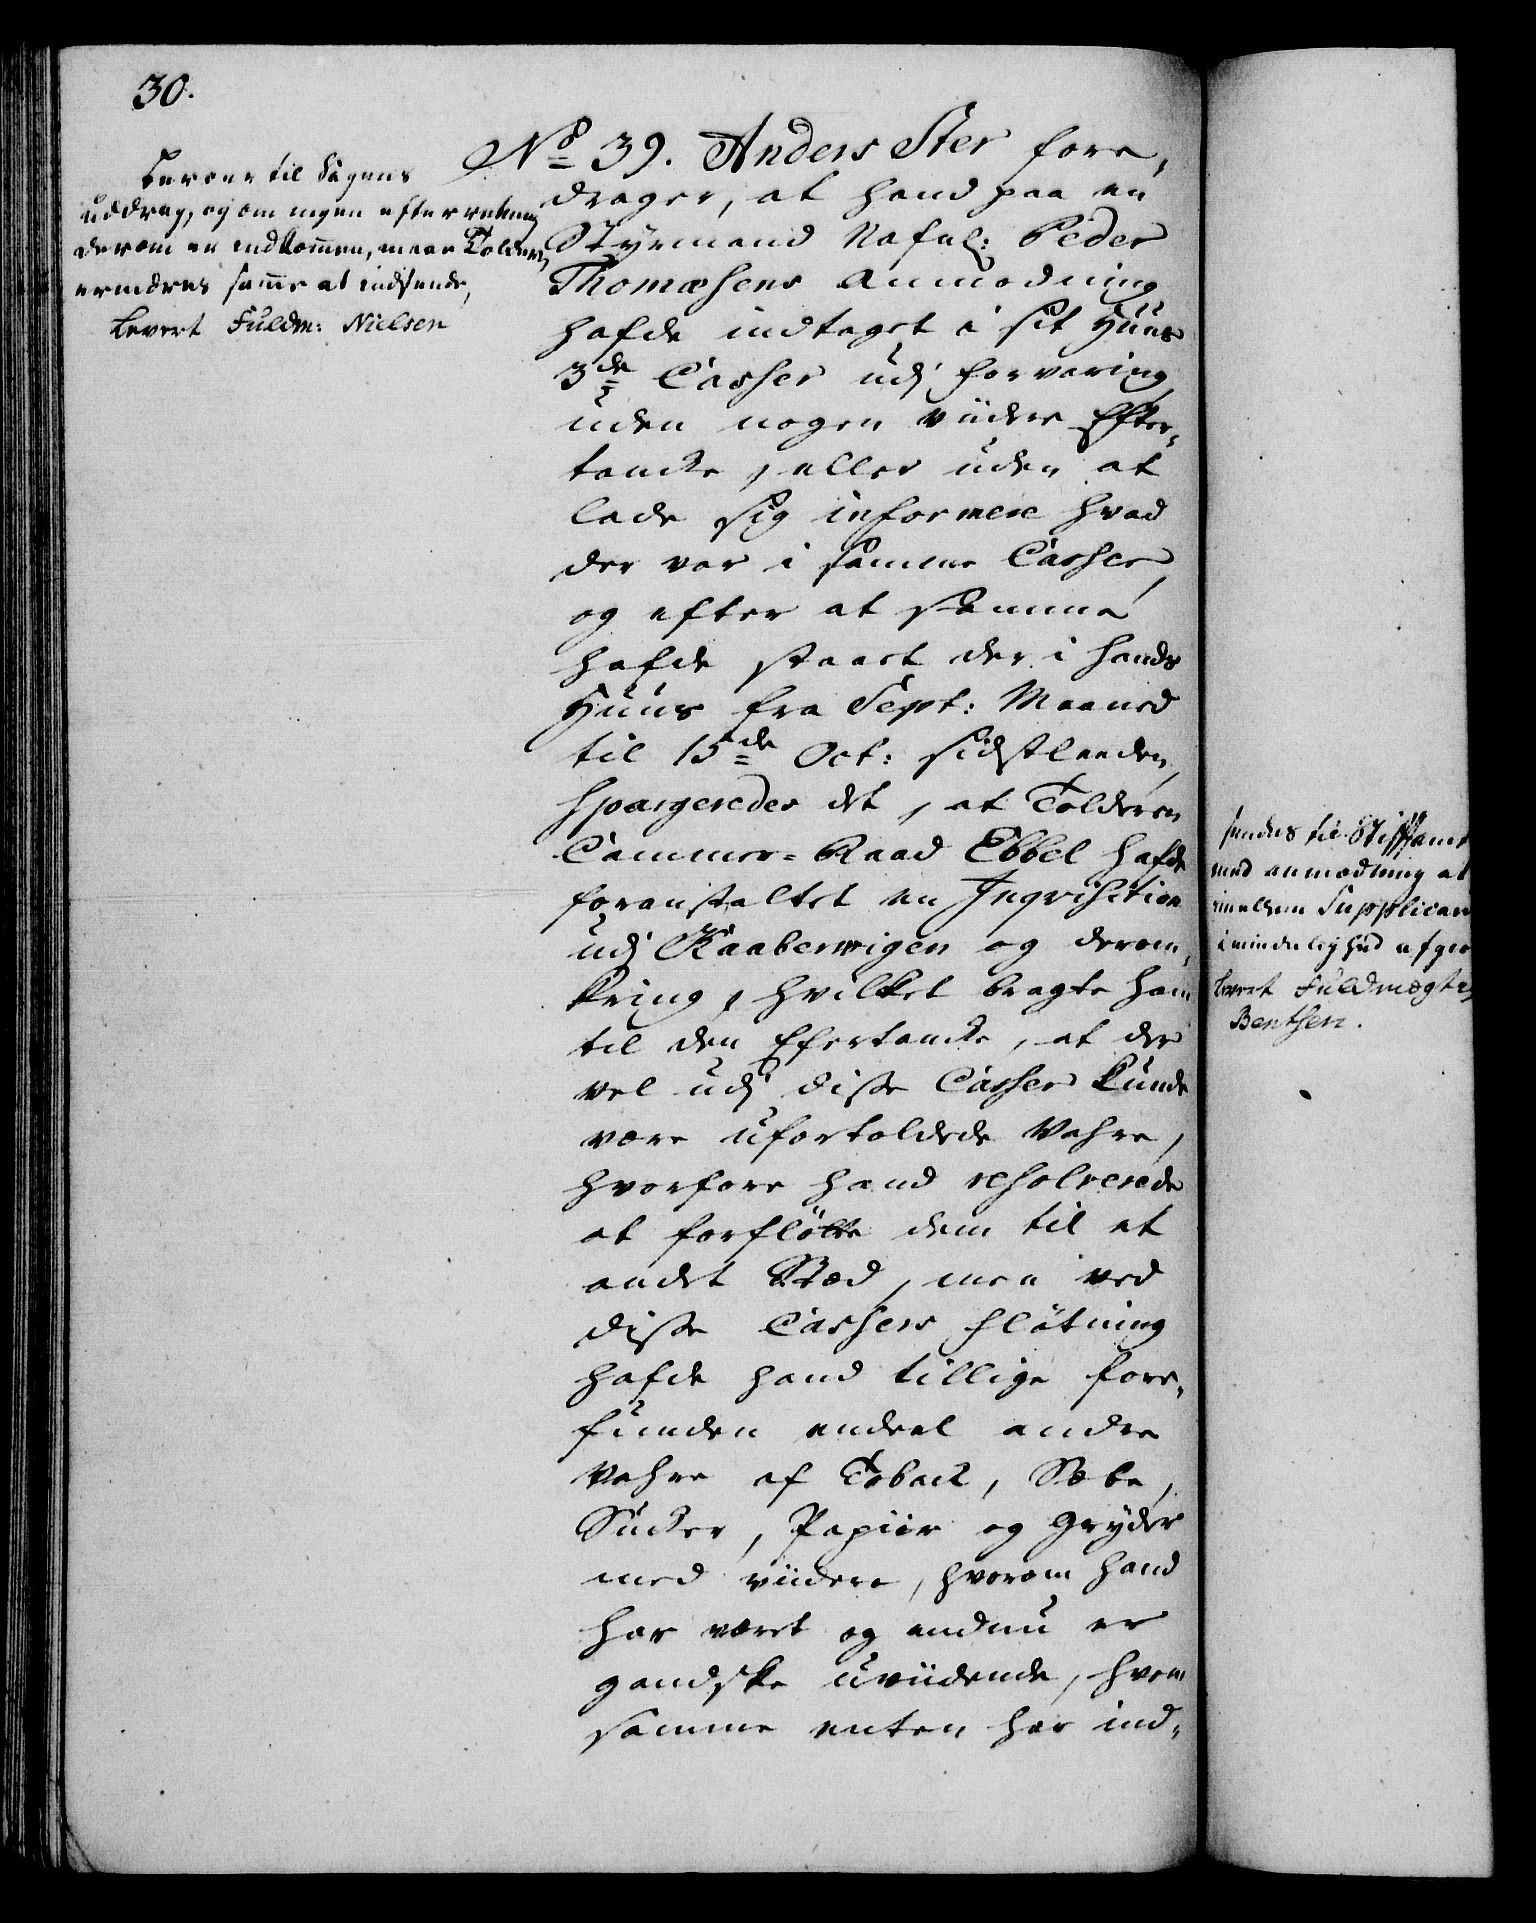 30.
beroer til Sagens
uddrag, og om ingen efterretning
derom er indkommen, maae Tolderen
erindres samme at indsende,
levert Fuldm: Nielsen
No 39. Anders Ster fore-
drager, at hand paa en
Styrmand Nafnl: Peder
Thomæsens Anmodning
hafde indtaget i sit Huus
3de Casser udj forvaring
uden nogen viidere Efter-
tancke, eller uden at
lade sig informere hvad
der var i samme Casser,
og efter at samme
hafde staaet der i hands
Huus fra Sept: Maaned
til 15de Oct: sidstleeden,
spargeredes det, at Tolderen
Cammer-Raad Ebbel hafde
foranstaltet en Inqvisition
udj Kaabervigen og derom-
kring, hvilket bragte ham
til den Efertancke, at der
vel udj disse Casser kunde
være ufortoldede Vahre,
hvorfore hand resolverede
at forfløtte dem til et
andet Stæd, men ved
disse Cassers fløtning
hafde hand tillige fore-
funden endeel andre
Vahre af Toback, Sæbe,
Sucker, Papiir og Gryder
med viidere, hvorom hand
har været og endnu er
gandske uviidende, hvem
samme enten har ind-
sendes til Stiftamt
med anmodning at
imellem Supplican
i mindelighed afgio
levert Fuldmægtig
Bentsen.